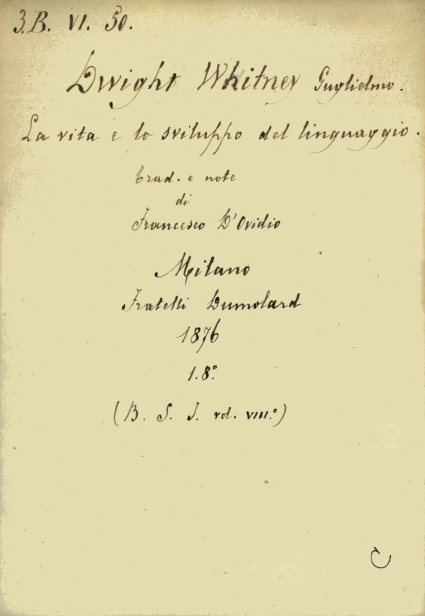 3.B. VI. 50.
Dwight Whitney Guglielmo.
La vita e lo sviluppo del linguaggio.
Trad. e note
di
Francesco D'Ovidio
Milano
Fratelli Dumolard
1876
1.8°
(B. S. I. vol. VIII.°)
C